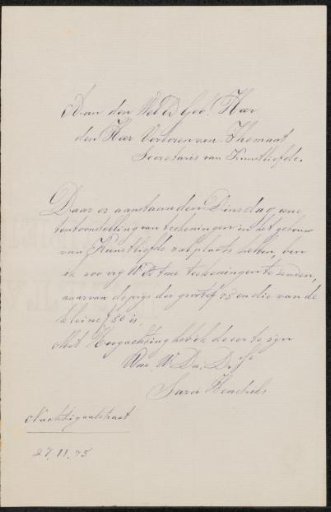 Aan den Wel Ed Geb. Heer
den Heer Verloren van Themaat
Secretaris van Kunstliefde.
Daar er aanstaanden Dinsdag eene
tentoonstelling van teekeningen in het gebouw
van Kunstliefde zal plaats hebben, ben
ik zoo vrij U twee teekeningen te zenden,
waarvan de prijs der groote f 75 en die van de
kleine f 50 is.
Met Hoogachting heb ik de eer te zijn
Uwe
Sara
Nachtegaalstraat
27.11.75